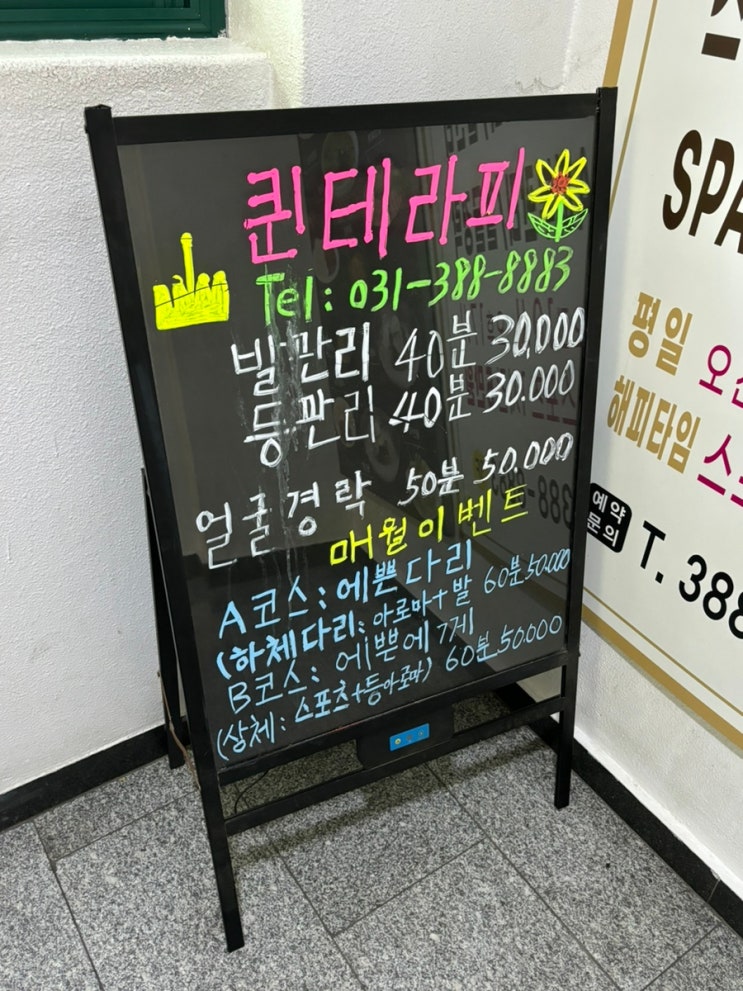 퀸테라피
Tel: 031-388-8883
발관리 40분 30,000
등관리 40분 30.000
얼굴경락 50분 50.000
매월이벤트
A코스: 예쁜다리
(하체다리: 아로마+발 60분 50.000
B코스: 예쁜에7게
(상체: 스포츠+등아로마) 60분 50.000
SPA
평일 오
해피타임 스
예약
문의
T. 388